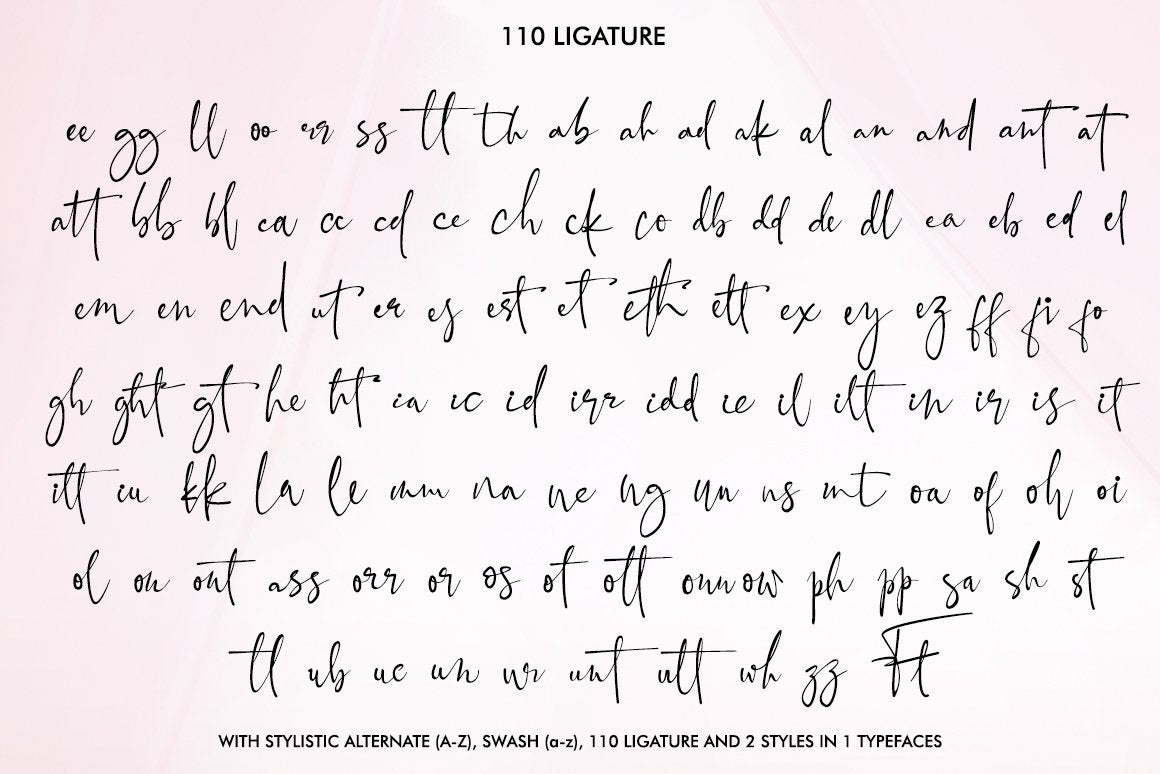 110 LIGATURE
ee gg ll oo rr ss tt th ab ah ad ak al an and ant at
att bb bl ca cc cd ce ch ck co db dd de dl ea eb ed el
em en end er es est et eth ett ex ey ez ff fi fo
gh ght gt he ht ia ic id irr idd ie il ilt in ir is it
itt iu kk la le mm na ne ng nn ns nt oa of oh oi
ol on ont ass orr or os ot ott ow ph pp sa sh st
tl ub uc un ur unt utt wh zz Ft
WITH STYLISTIC ALTERNATE (A-Z), SWASH (a-z), 110 LIGATURE AND 2 STYLES IN 1 TYPEFACES